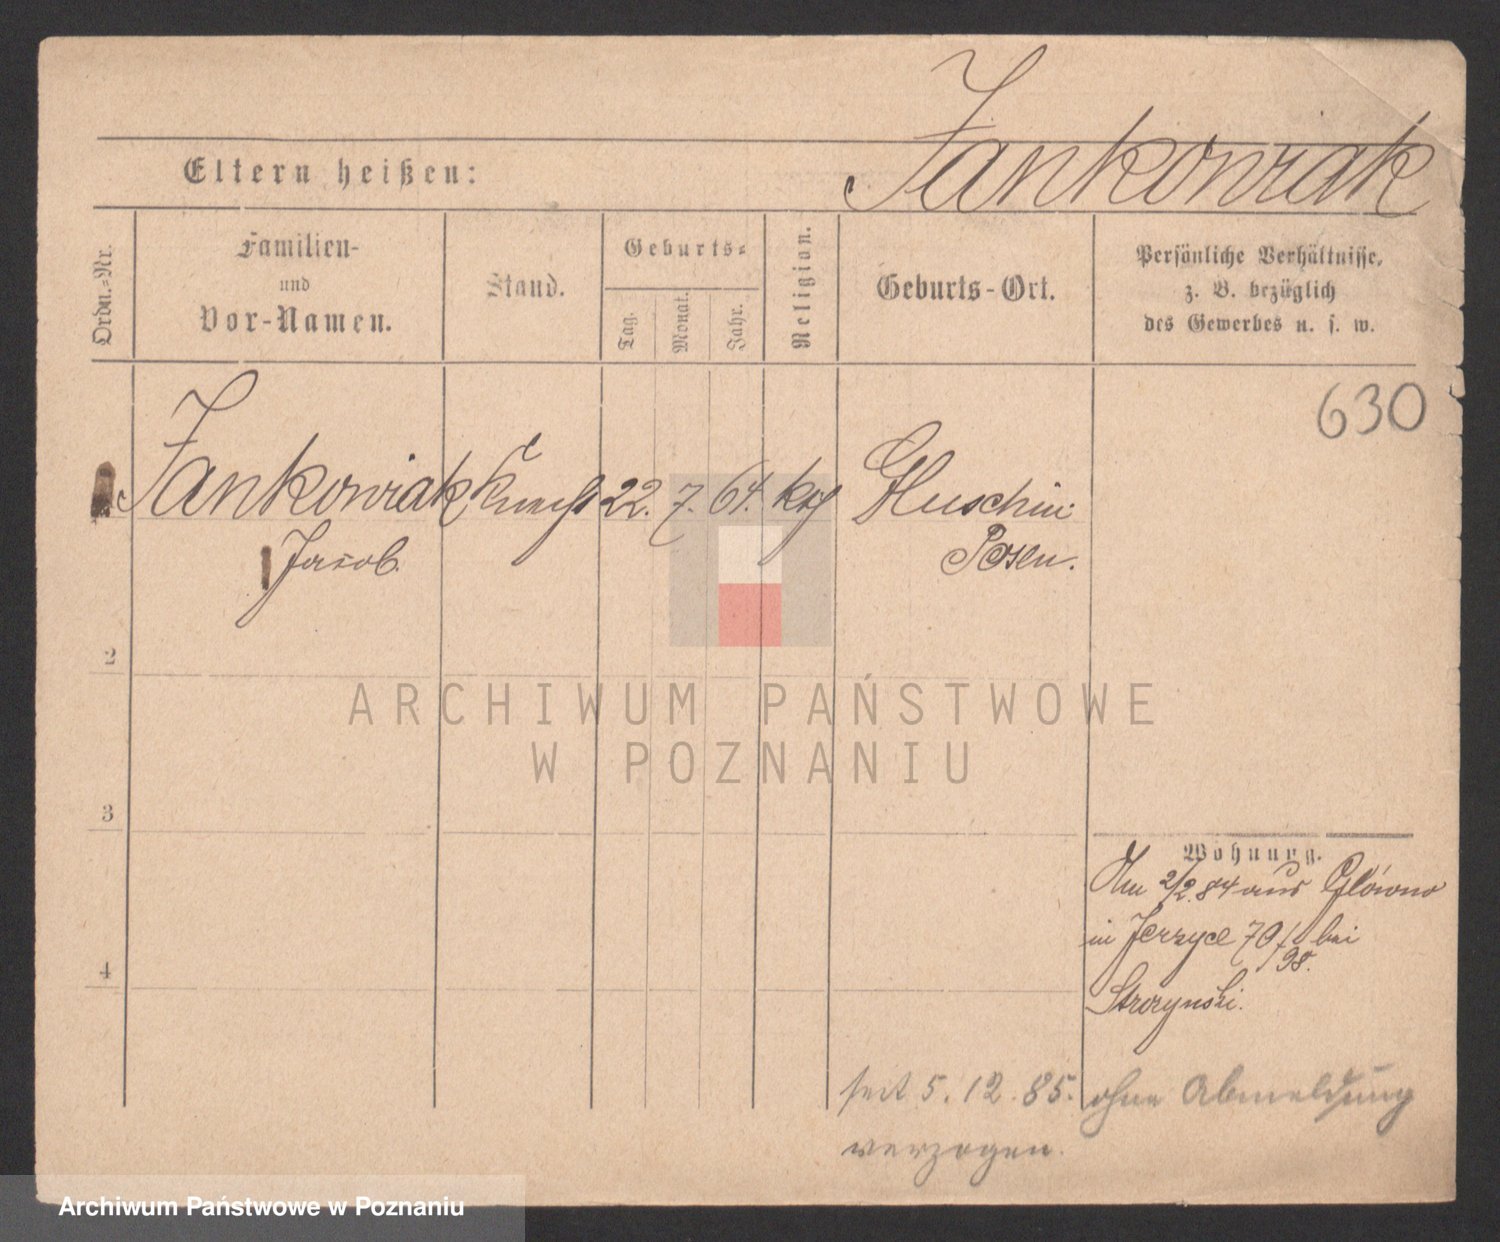 Jankowiak
Eltern heißen:
Ordn.-Nr.
Familien-
und
Vor-Namen.
Stand.
Geburts-
Tag.
Monat.
Jahr.
Religion.
Geburts-Ort.
Persönliche Verhältnisse,
z. B. bezüglich
des Gewerbes u. s. w.
630
Jankowiak Knecht 22. 7. 64. kth Gluschin
Jacob. Posen.
2
ARCHIWUM PAŃSTWOWE
W POZNANIU
3
Wohnung.
Am 2/2. 84 aus Główno
in Jerzyce 70/98. bei
4
Strozynski.
seit 5. 12. 85. ohne Abmeldung
verzogen.
Archiwum Państwowe w Poznaniu